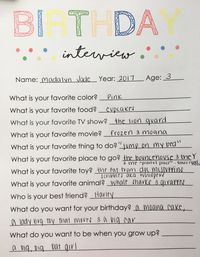 BIRTHDAY
interview
Name: Madalyn Jade Year: 2017 Age: 3
What is your favorite color? Pink
What is your favorite food? cupcakes
What is your favorite TV show? the lion guard
What is your favorite movie? frozen & moana
What is your favorite thing to do? "jump on my bed"
What is your favorite place to go? the bouncehouse & the Y
What is your favorite toy? the
What is your favorite animal? whale sharks & giraffes
Who is your best friend? Harity
What do you want for your birthday? a moana cake,
a lady bug toy that moves & a big car
What do you want to be when you grow up?
a big, big fat girl